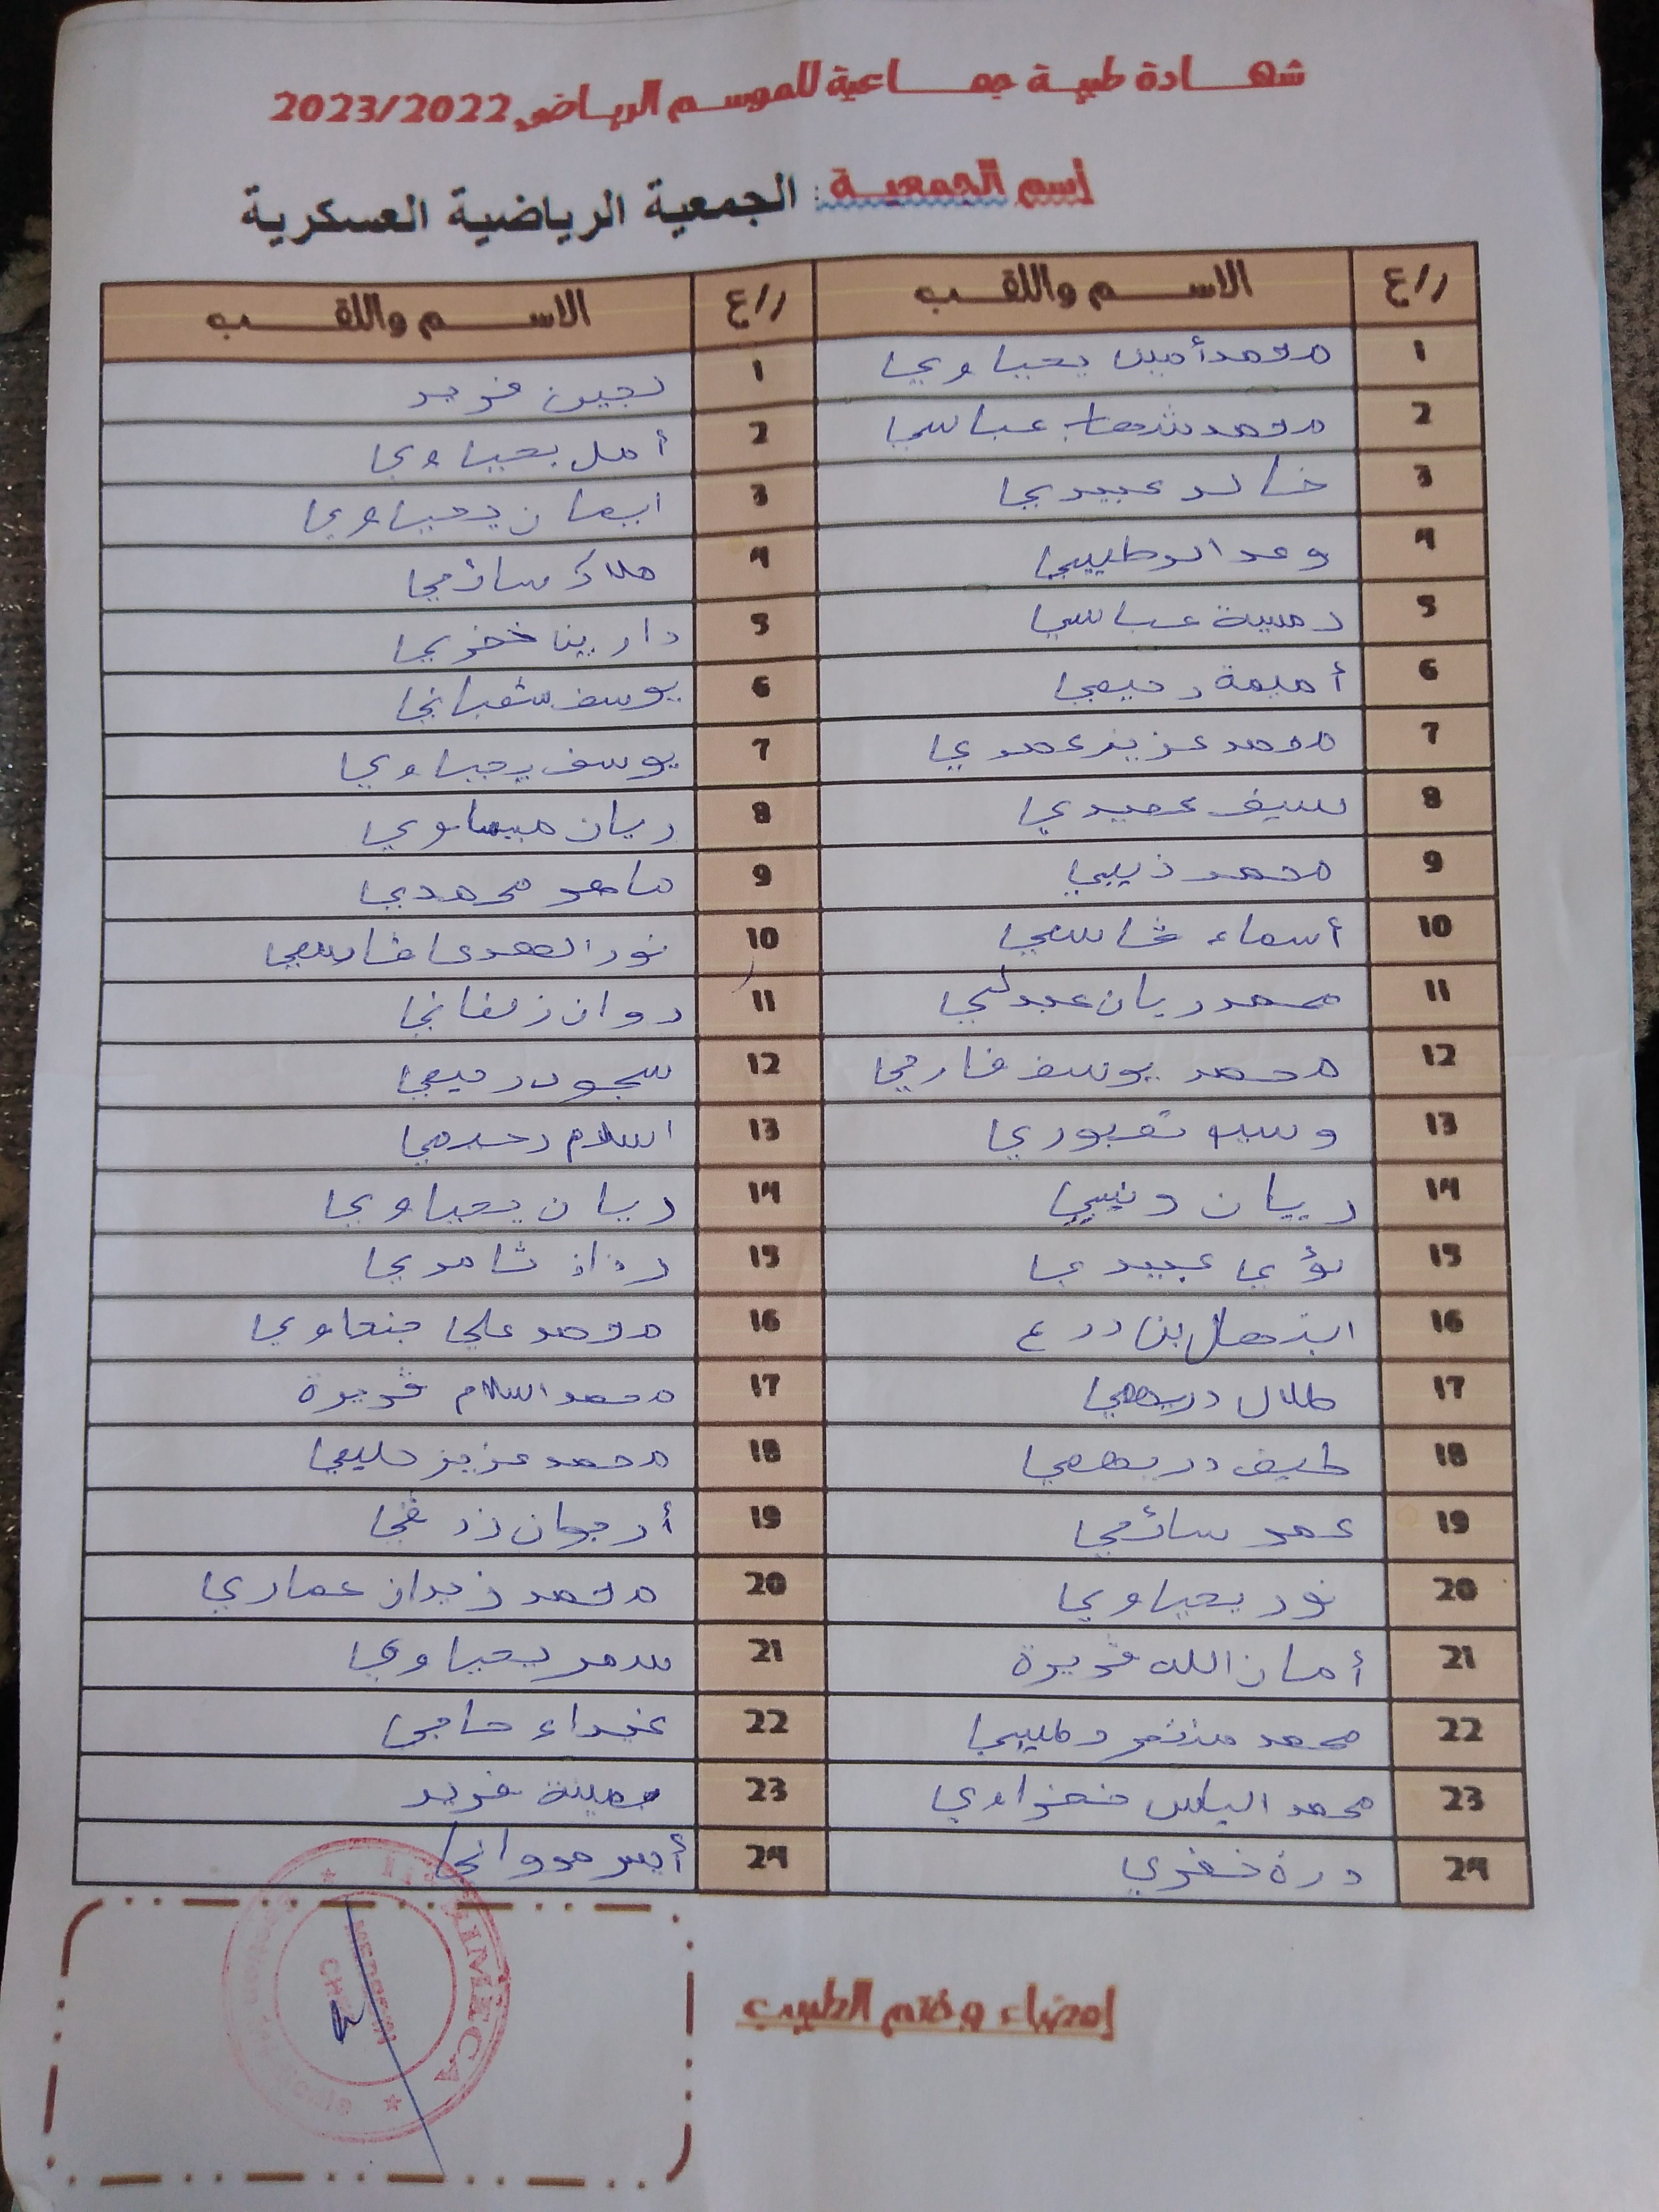 شهادة طبية جماعية للموسم الرياضي 2023/2022
إسم الجمعية: الجمعية الرياضية العسكرية
ر/ع الاسم واللقب ر/ع الاسم واللقب
1 محمد أمين يحياوي 1 لجين فريد
2 محمد شهاب عباسي 2 أمل يحياوي
3 خالد عبيدي 3 ايمان يحياوي
4 وعد الرطيبي 4 ملاك سائمي
5 دمية عباسي 5 دارينا خفري
6 أميمة رحيمي 6 يوسف شعباني
7 محمد عزيز عمري 7 يوسف يحياوي
8 سيف عبيدي 8 ريان ميساوي
9 محمد ذيبي 9 ماهر محمدي
10 أسماء قاسمي 10 نور الهدى قاسمي
11 محمد ريان عبدلي 11 روان زلفاني
12 محمد يوسف فارحي 12 سجود رحيمي
13 تعبوري 13 اسلام رحيمي
14 ريان 14 ريان يحياوي
15 لؤي عبيدي 15 رزان ثامري
16 ابتهال بن درع 16 محمد علي جنحاوي
17 طلال دريهمي 17 محمد اسلام قريرة
18 طيف دريهمي 18 محمد عزيز حليمي
19 عمر سائمي 19 أرجوان زرقي
20 نور يحياوي 20 محمد زيدان عماري
21 أمان الله قريرة 21 سمر يحياوي
22 محمد منتصر رطيبي 22 غيداء حاجي
23 محمد الياس نفزاوي 23 يمينة فريد
24 درة خفري 24 أيسر مرواني
إمضاء وختم الطبيب